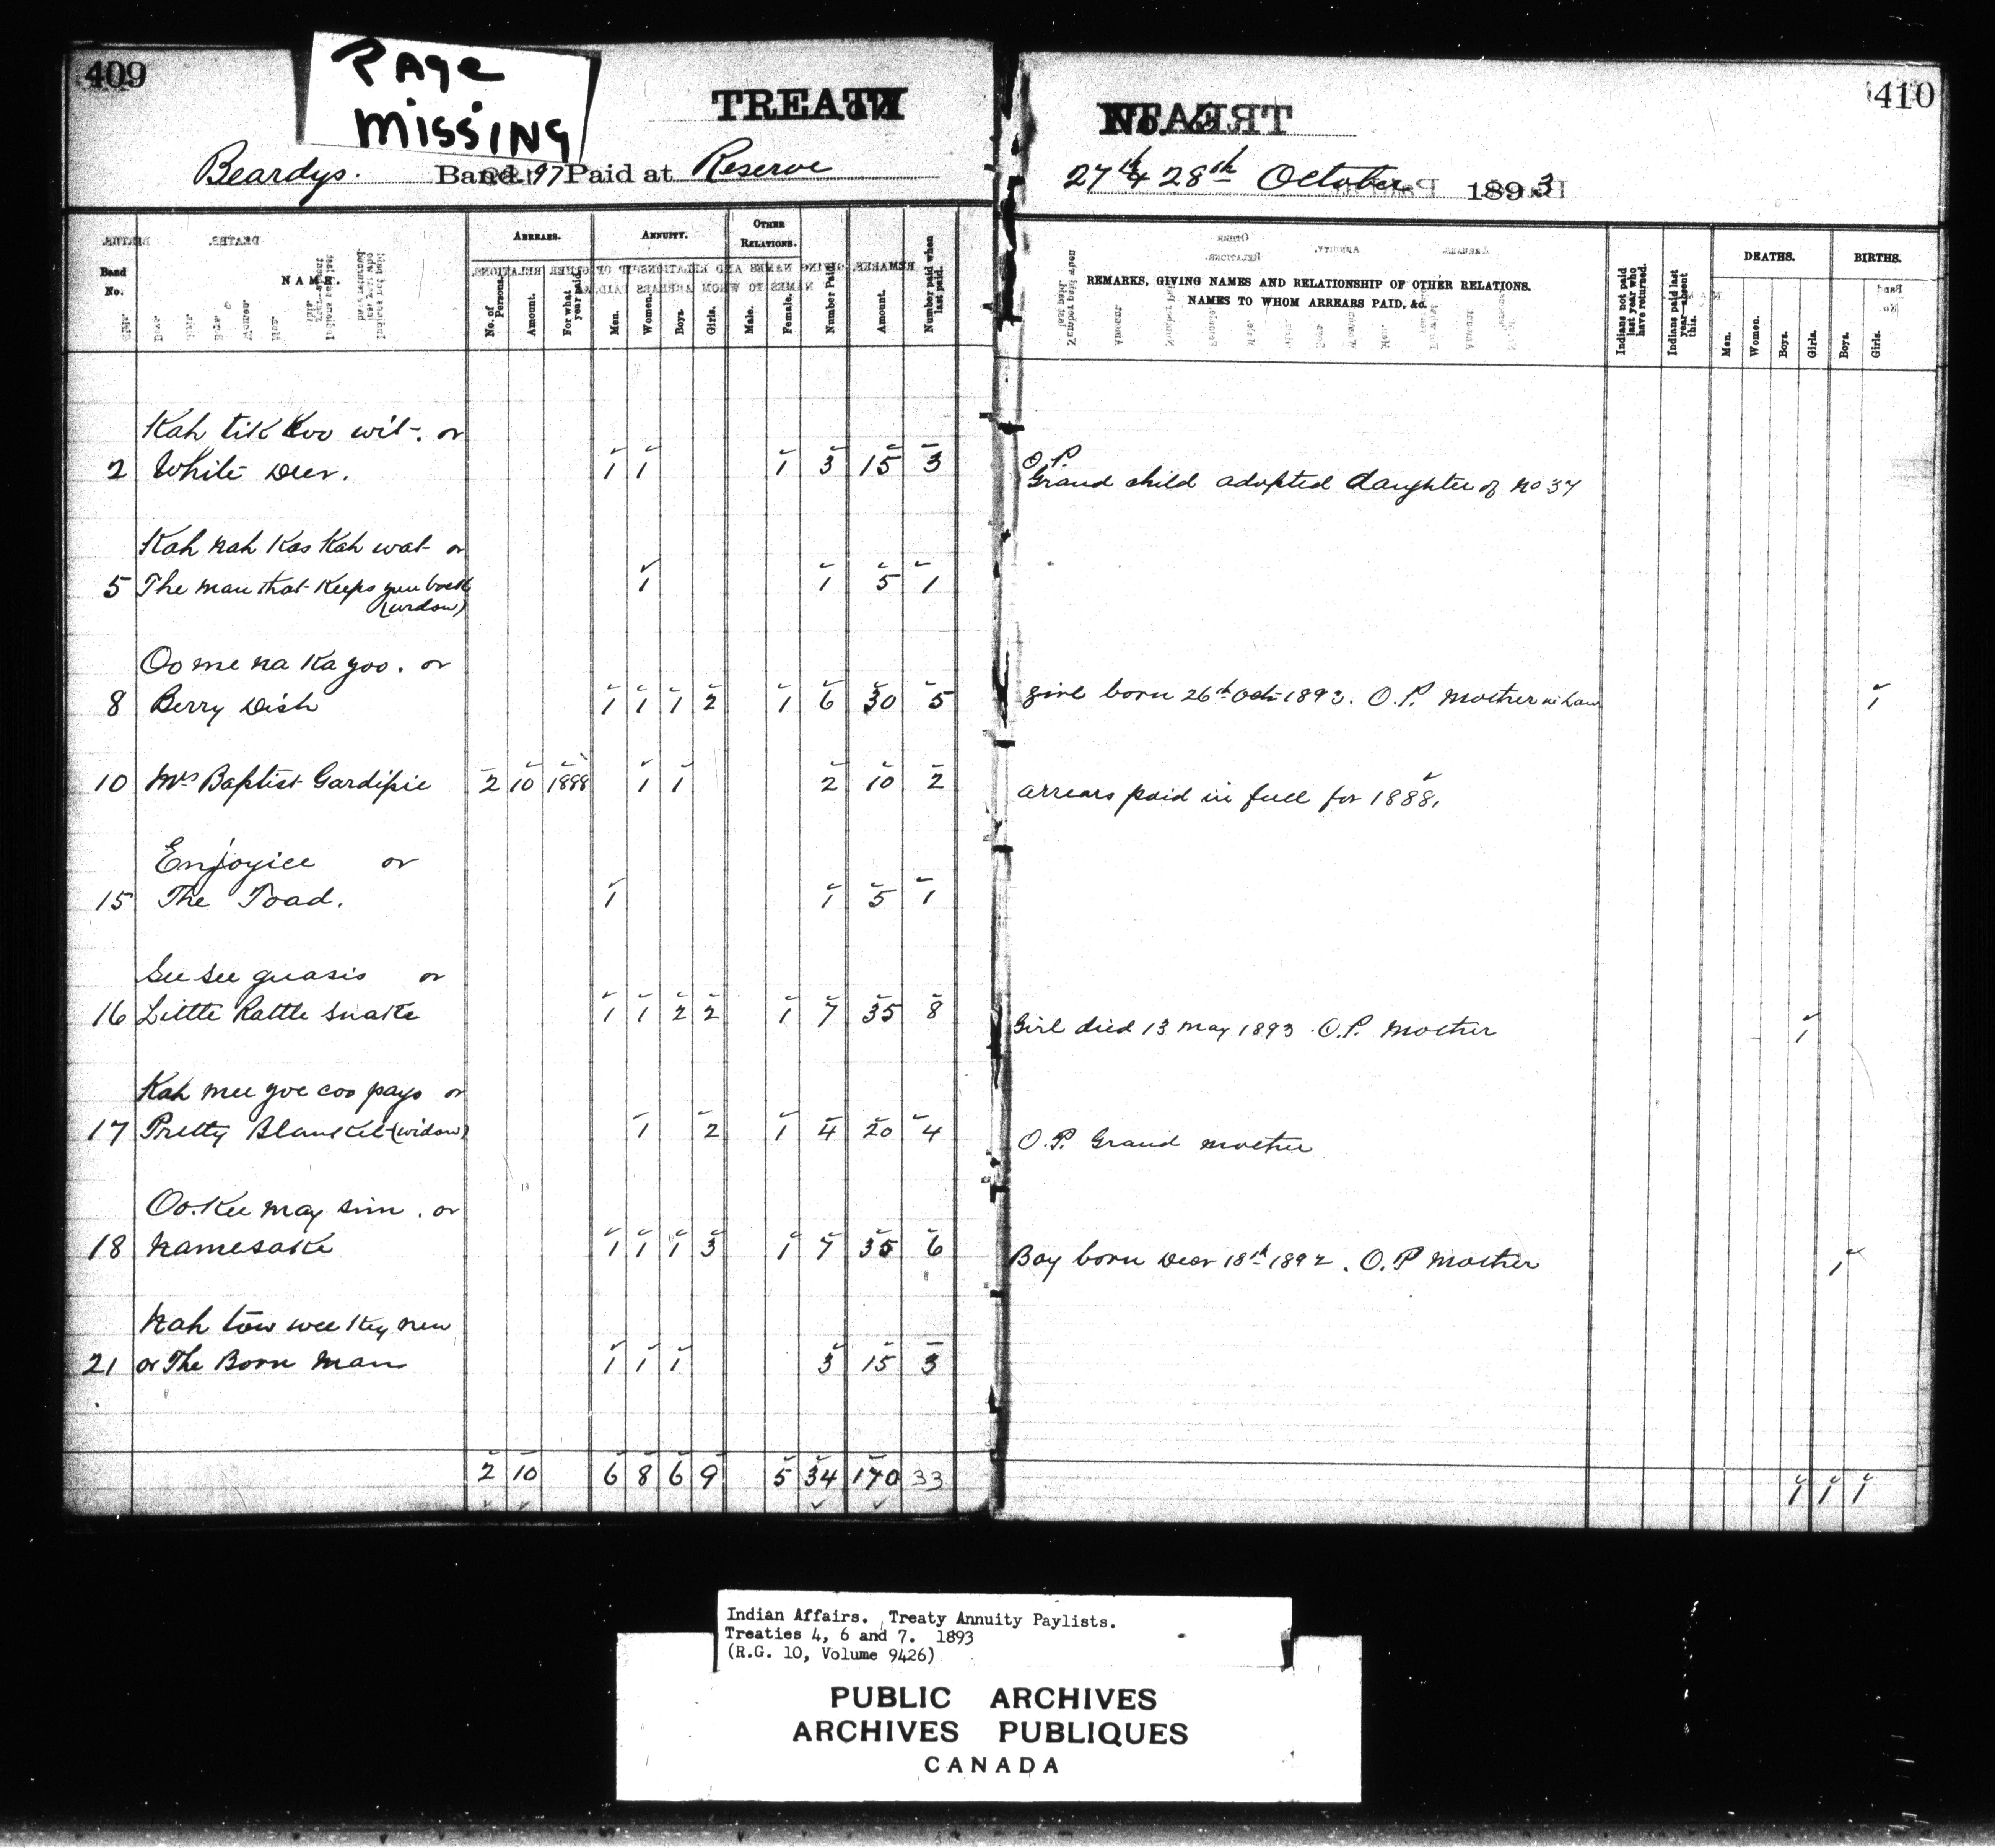 409
PAGE MISSING
TREATY
Beardys. Band. 97 Paid at Reserve
Band No.
NAME.
ARREARS.
No. of Persons.
Amount.
For what year paid.
ANNUITY.
Men.
Women.
Boys.
Girls.
OTHER RELATIONS.
Male.
Female.
Number Paid.
Amount.
Number paid when last paid.
Kah tik koo wit. or
2 White Deer. 1 1 1 3 15 3
Kah nah Kas Kah wat or
5 The man that Keeps you back 1 1 5 1
(widow)
Oo me na Ka goo. or
8 Berry Dish 1 1 1 2 1 6 30 5
10 Mrs Baptist Gardipie 2 10 1888 1 1 2 10 2
Enjoyice or
15 The Toad. 1 1 5 1
See see quasis or
16 Little Rattle Snake 1 1 2 2 1 7 35 8
Kah mee yoe coo pays or
17 Pretty Blanket (widow) 1 2 1 4 20 4
Oo. Kee may sim. or
18 Namesake 1 1 1 3 1 7 35 6
Nah tow wee Key new
21 or The Born Man 1 1 1 3 15 3
2 10 6 8 6 9 5 34 170 33
410
No. 6
27th & 28th October 1893
REMARKS, GIVING NAMES AND RELATIONSHIP OF OTHER RELATIONS.
NAMES TO WHOM ARREARS PAID, &c.
Indians not paid last year who have returned.
Indians paid last year absent this.
DEATHS.
Men.
Women.
Boys.
Girls.
BIRTHS.
Boys.
Girls.
O.P.
Grand child adopted daughter of No 37
girl born 26th Oct 1893. O.P. Mother in Law 1
arrears paid in full for 1888.
Girl died 13 May 1893. O.P. Mother 1
O.P. Grand Mother
Boy born Decr 18th 1892. O.P Mother 1
1 1 1
Indian Affairs. Treaty Annuity Paylists.
Treaties 4, 6 and 7. 1893
(R.G. 10, Volume 9426)
PUBLIC ARCHIVES
ARCHIVES PUBLIQUES
CANADA